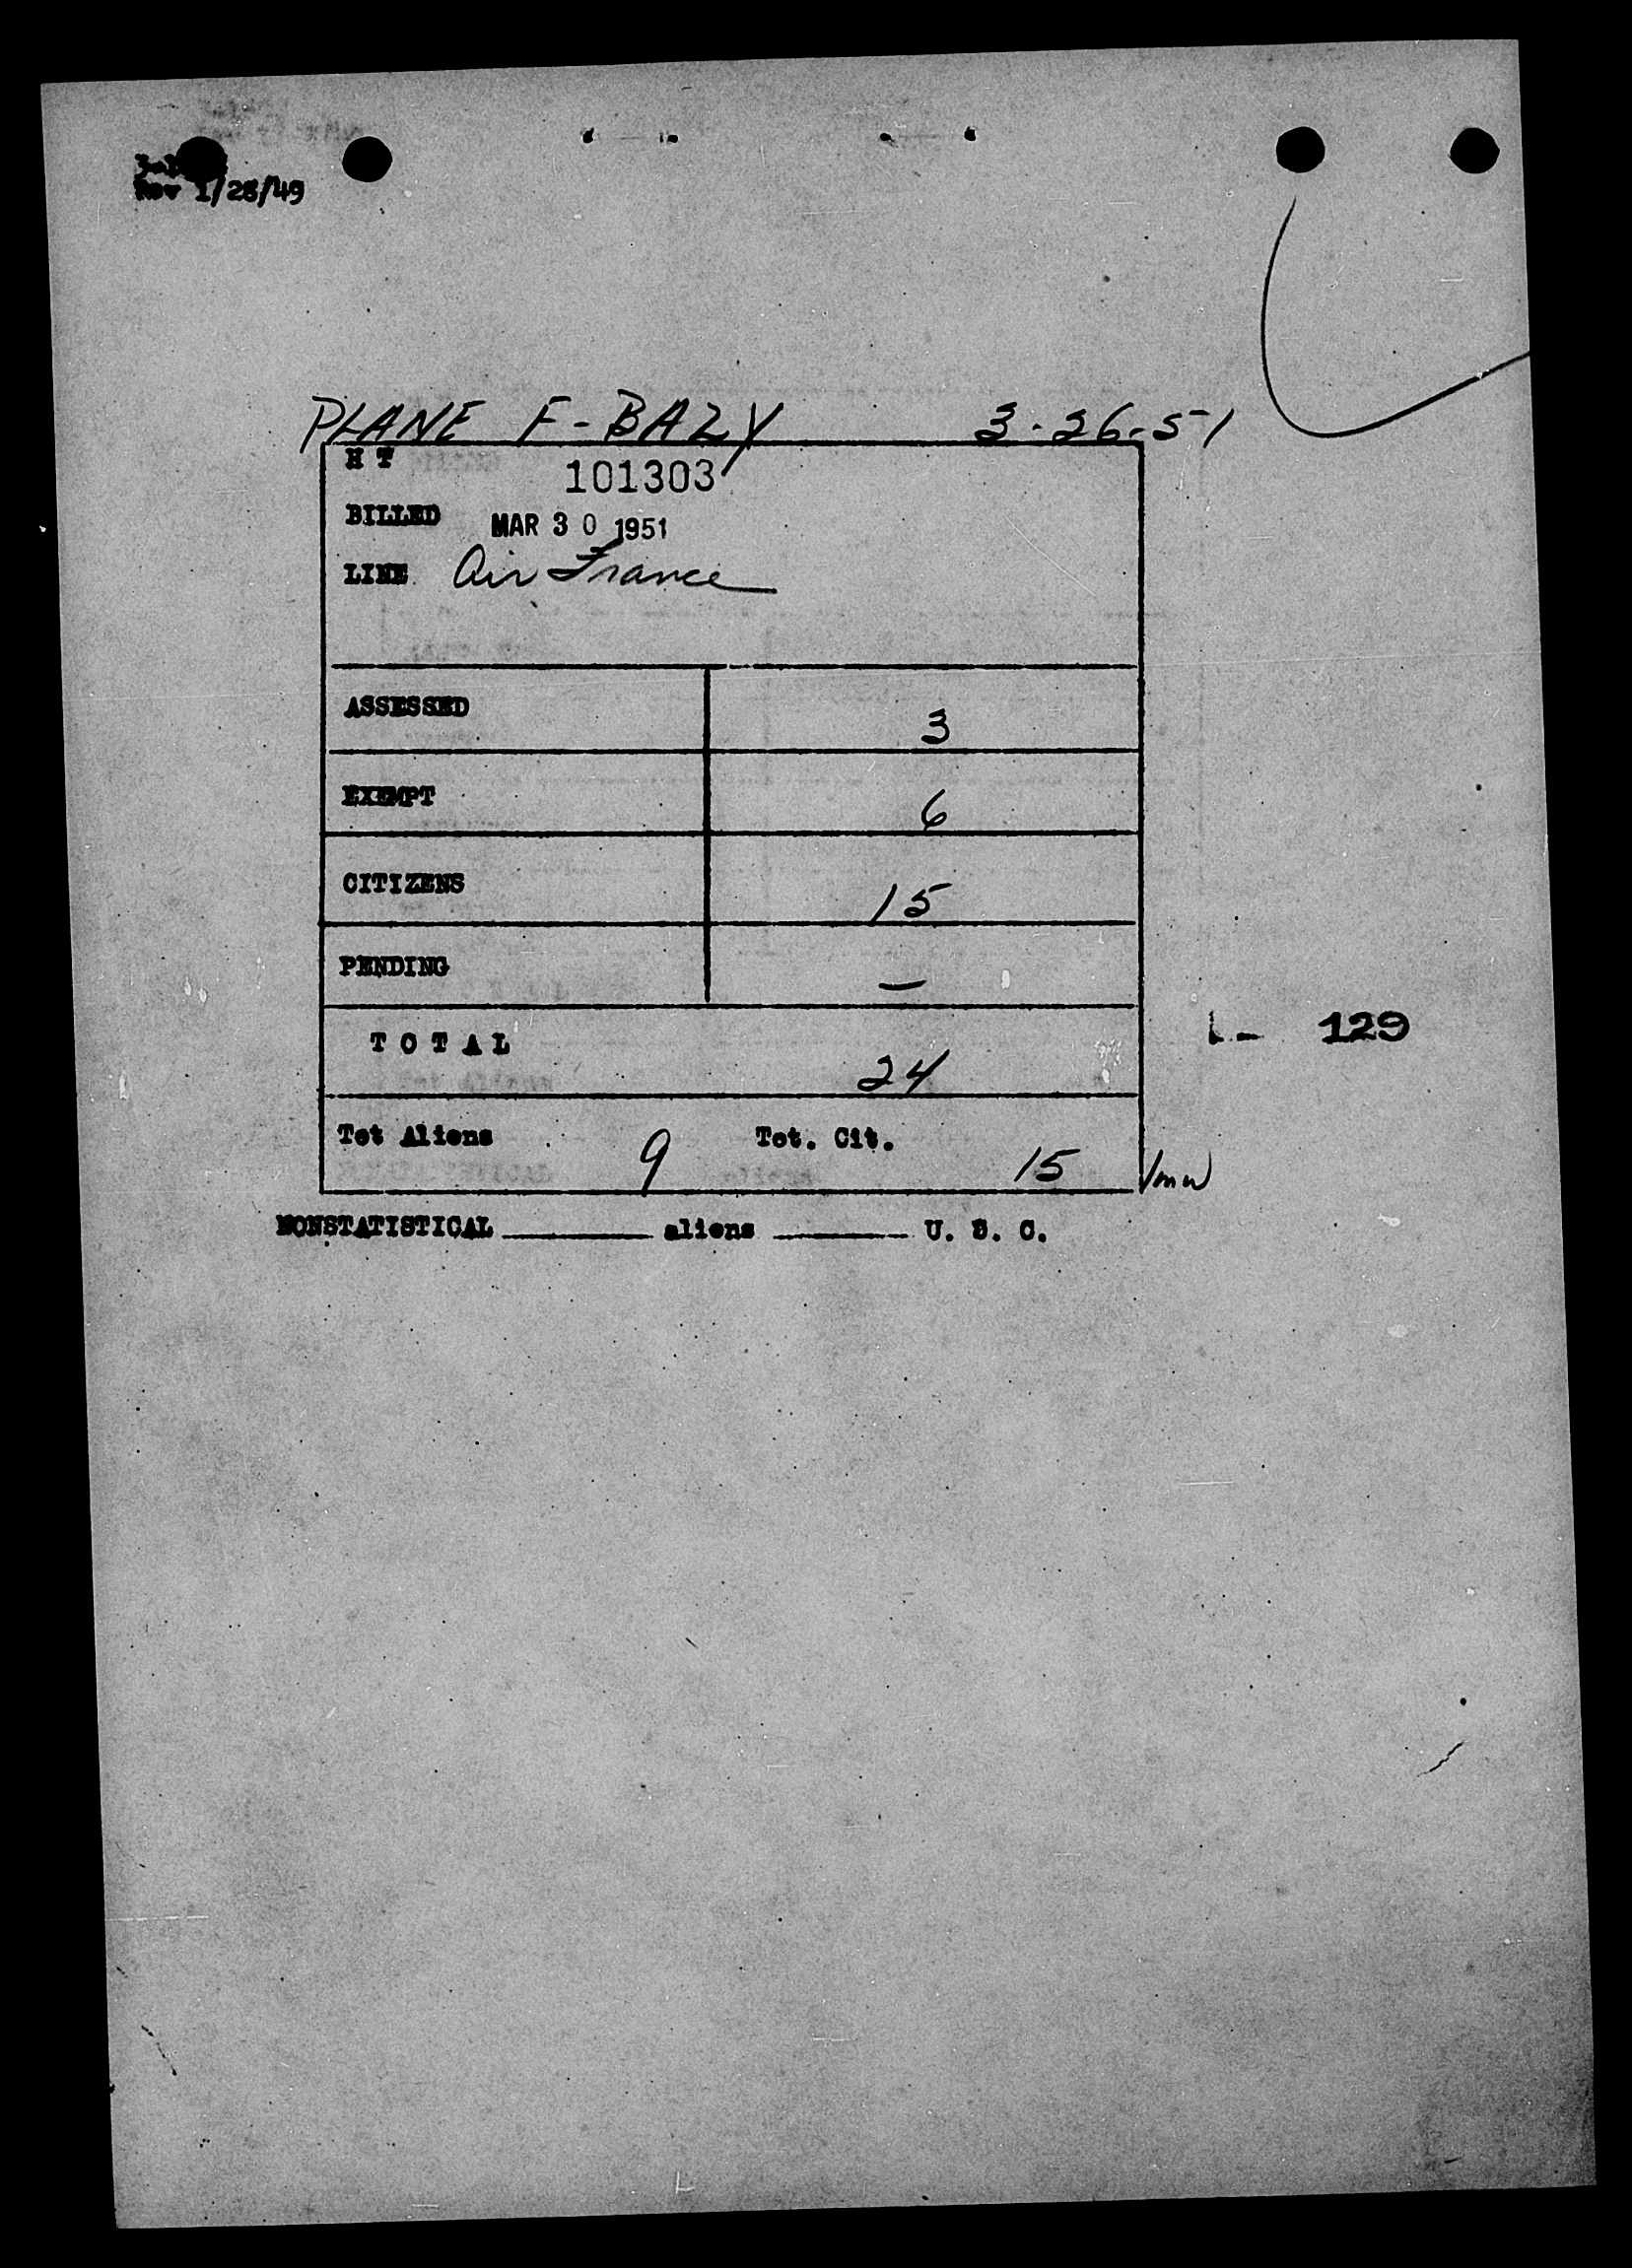 Rev 1/28/49
PLANE F-BAZY 3-26-51
H T 101303
BILLED MAR 30 1951
LINE Air France
ASSESSED 3
EXEMPT 6
CITIZENS 15
PENDING —
TOTAL 24
129
Tot Aliens 9 Tot. Cit. 15
NONSTATISTICAL ______ aliens ______ U. S. C.